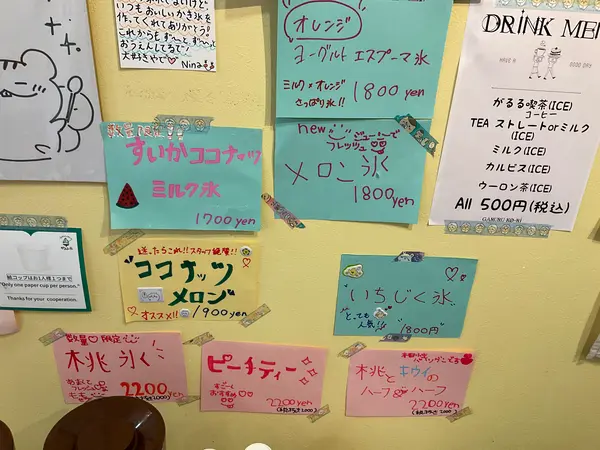 いつもおいしいかき氷を
作ってくれてありがとう!
これからも ず〜と ず〜って
おうえんしてるで♡
大好きやで♡ Ninaより
オレンジ
ヨーグルト エスプーマ 氷
ミルク×オレンジ
さっぱり氷!!
1800yen
DRINK ME
がるる喫茶(ICE)
コーヒー
TEA ストレートorミルク
(ICE)
ミルク(ICE)
カルピス(ICE)
ウーロン茶(ICE)
All 500円(税込)
数量限定
すいかココナッツ
ミルク氷
1700yen
new
ジューシーで
フレッシュ
メロン 氷
1800yen
紙コップはお1人様1つまで
"Only one paper cup per person."
Thanks for your cooperation.
迷ったらこれ!!スタッフ絶賛!!
ココナッツ
メロン
オススメ!!
1900yen
いちじく氷
とっても
人気!!
1800円
数量♡限定
桃 氷
2200yen
ピーチティー
すごーく
おすすめ
2200yen
桃とキウイの
ハーフ&ハーフ
2200yen